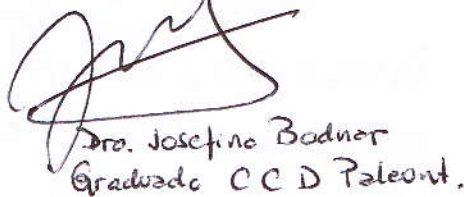 Dra. Josefina Bodnar
Graduada C C D Paleont.